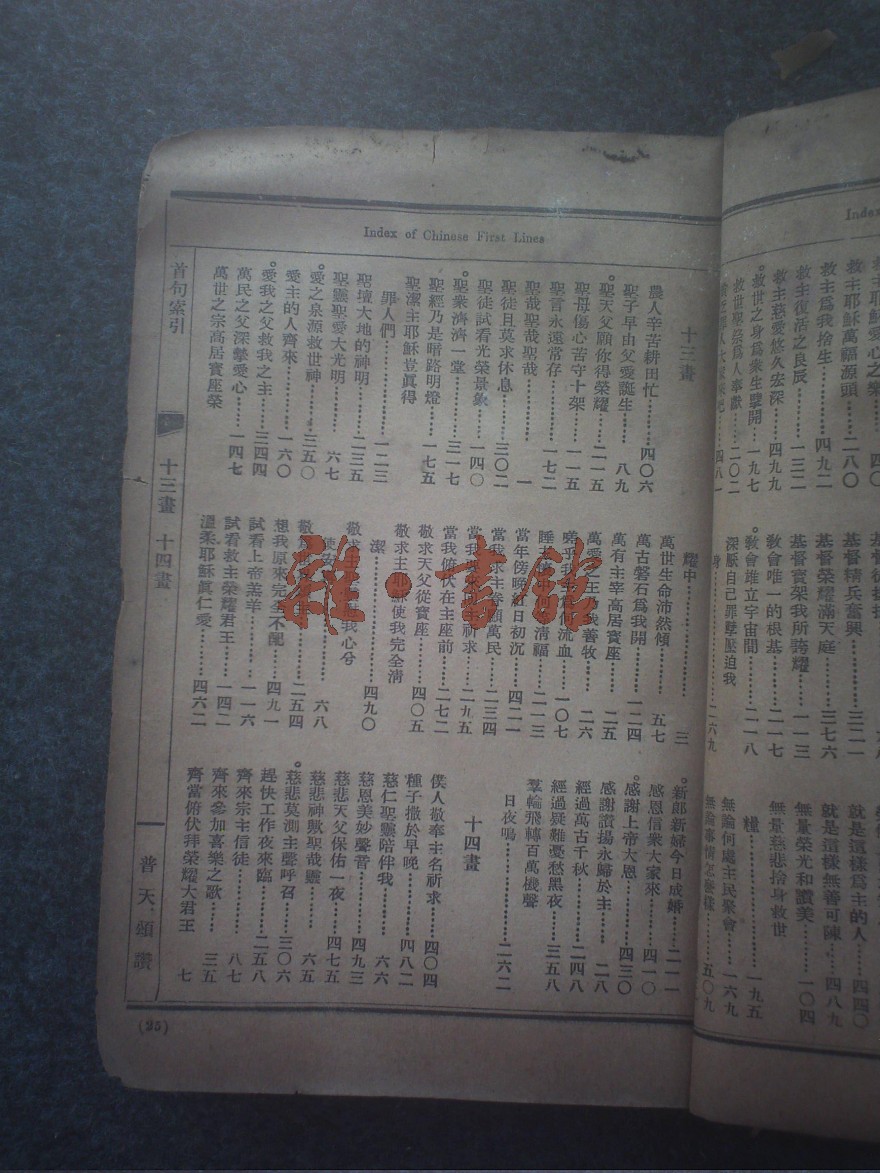 Index of Chinese First Lines
十三畫
農人辛苦耕田忙………四〇六
聖子早由父愛誕生………八九
聖天父願你得榮耀………二一五
聖母傷心苦守十架………一一五
聖言永遠常存………一七二
聖哉聖哉聖哉………一
聖徒且莫求休息………三〇二
聖徒試看光榮景象………一四〇
聖衆濟濟一堂………三一七
聖經乃是暗路明燈………一七五
聖潔主耶穌豈眞得
罪人們………一二三
聖壇大地的神明………二三五
聖靈聖愛大光明………六七
愛之泉源救世神………三五〇
愛主的人齊來………一六〇
愛我之父救我之主………三四四
萬民之父深摯愛心………一四七
萬世之宗高居寶座榮
耀中………三
萬世生命沛然傾………五七
萬古磐石爲我開………一二四
萬有主宰高居寶座………二五
萬愛之王乃我善牧………二六
嗟乎我主爲何流血………一〇七
清福………二一三
當年傍晚紅日初沉………四二一
當我求主眷顧萬民………二三四
祈求………二九五
當我俯伏在主座前………二七二
敬求天父從寶座………四〇五
敬求主耶穌使我完全清
潔………四九〇
敬求
我心兮
使安………六八
敬
………二五四
想我原來完全不配………四九一
試看上帝羔羊………一一六
試看救主榮耀君王………一四二
溫柔耶穌眞仁愛………四六二
新郎新婦今日成婚………二一一
感恩信衆大家來………四一〇
感謝上帝大恩………四三〇
感謝讚揚永歸於主………二八
經過萬古千秋………二四八
經過疑難憂愁黑夜………三五八
羣輪飛轉百萬機聲
日夜鳴………二六二
十四畫
僕人敬奉主名祈求………四〇四
種子撒於早晚………四八二
慈仁聖靈陪伴我………六六
慈恩美妙聲音………四九三
慈悲天父保佑一夜………四七五
慈悲神歟聖哉靈………六五
慈悲莫測主聲呼召………三〇六
趕快工作夜來臨………二五八
齊來宗主信徒………八七
齊來參加喜樂之歌………三五
齊當俯伏拜榮耀大君王………七
首句索引
十三畫 十四畫
普天頌讚
(25)
Index
救主耶穌萬福源頭………二八〇
救主爲我捨生………四九
救主復活之良辰………一三二
救主慈愛悠久宏深………四九二
救世之身爲衆生擘開………一九七
救世聖祭爲人奉獻………二〇二
四八一
基督精兵奮興………三二一
基督榮耀滿天庭………三七六
基督寶架我所誇耀………一一三
敎會唯一的根基………二一七
敎會雄立宇宙間………二一八
深厭自己罪孽壓迫我
身………二六九
就是這樣爲主的人………四四〇
就是這樣無善可陳………四八九
無量榮光和讚美………一〇四
無量慈悲捨身救世
糧………一九五
無論何處主民聚會………一六九
無論事情怎麼樣………五〇九
雜·書館